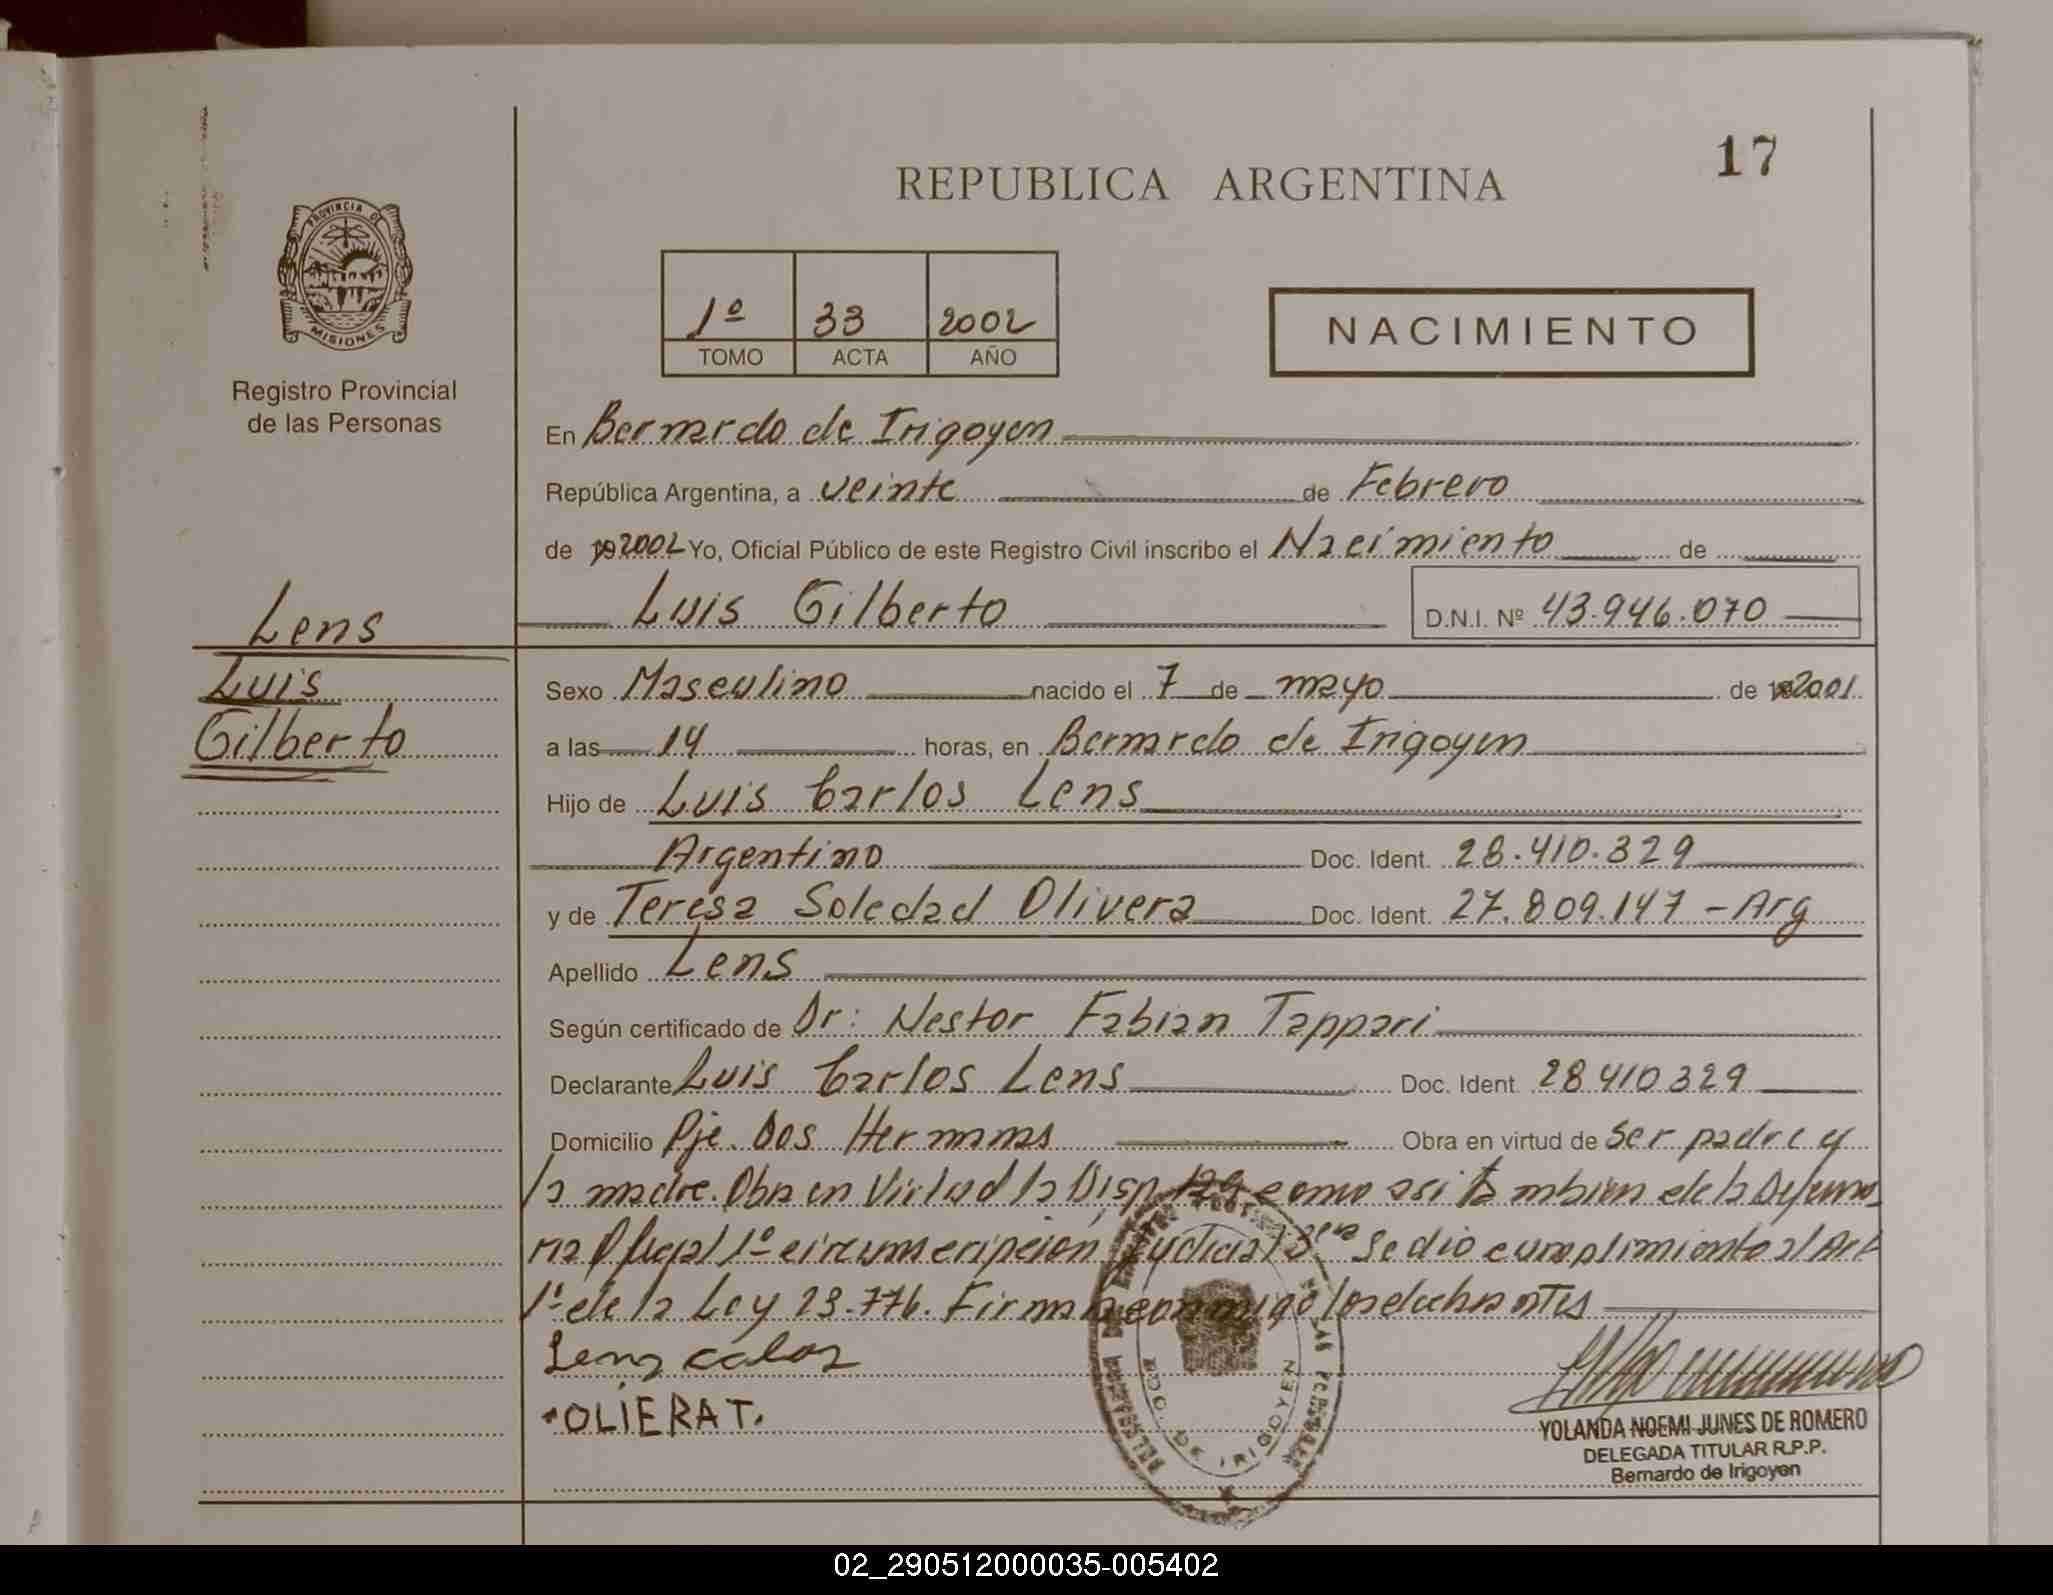 17
REPUBLICA ARGENTINA
PROVINCIA DE
MISIONES
Registro Provincial
de las Personas
1º 33 2002
TOMO ACTA AÑO
NACIMIENTO
En Bernardo de Irigoyen
República Argentina, a veinte de Febrero
de 192002 Yo, Oficial Público de este Registro Civil inscribo el Nacimiento de
Luis Gilberto D.N.I. Nº 43.946.070
Lens
Luis
Gilberto
Sexo Masculino nacido el 7 de mayo de 2001
a las 14 horas, en Bernardo de Irigoyen
Hijo de Luis Carlos Lens
Argentino Doc. Ident. 28.410.329
y de Teresa Soledad Olivera Doc. Ident. 27.809.147 - Arg
Apellido Lens
Según certificado de Dr: Nestor Fabian Tappari
Declarante Luis Carlos Lens Doc. Ident. 28410329
Domicilio Pje. Dos Hermanas Obra en virtud de ser padre y
la madre. Obra en Virtud la Disp 129 como asi tambien de la Defenso
ria Oficial 1º circunscripcion Judicial 3era Se dio cumplimiento al Art
1º de la Ley 23.776. Firman conmigo los declarantes
Lens calos
OLIERA T.
BDO. DE IRIGOYEN
YOLANDA NOEMI JUNES DE ROMERO
DELEGADA TITULAR R.P.P.
Bernardo de Irigoyen
02_290512000035-005402